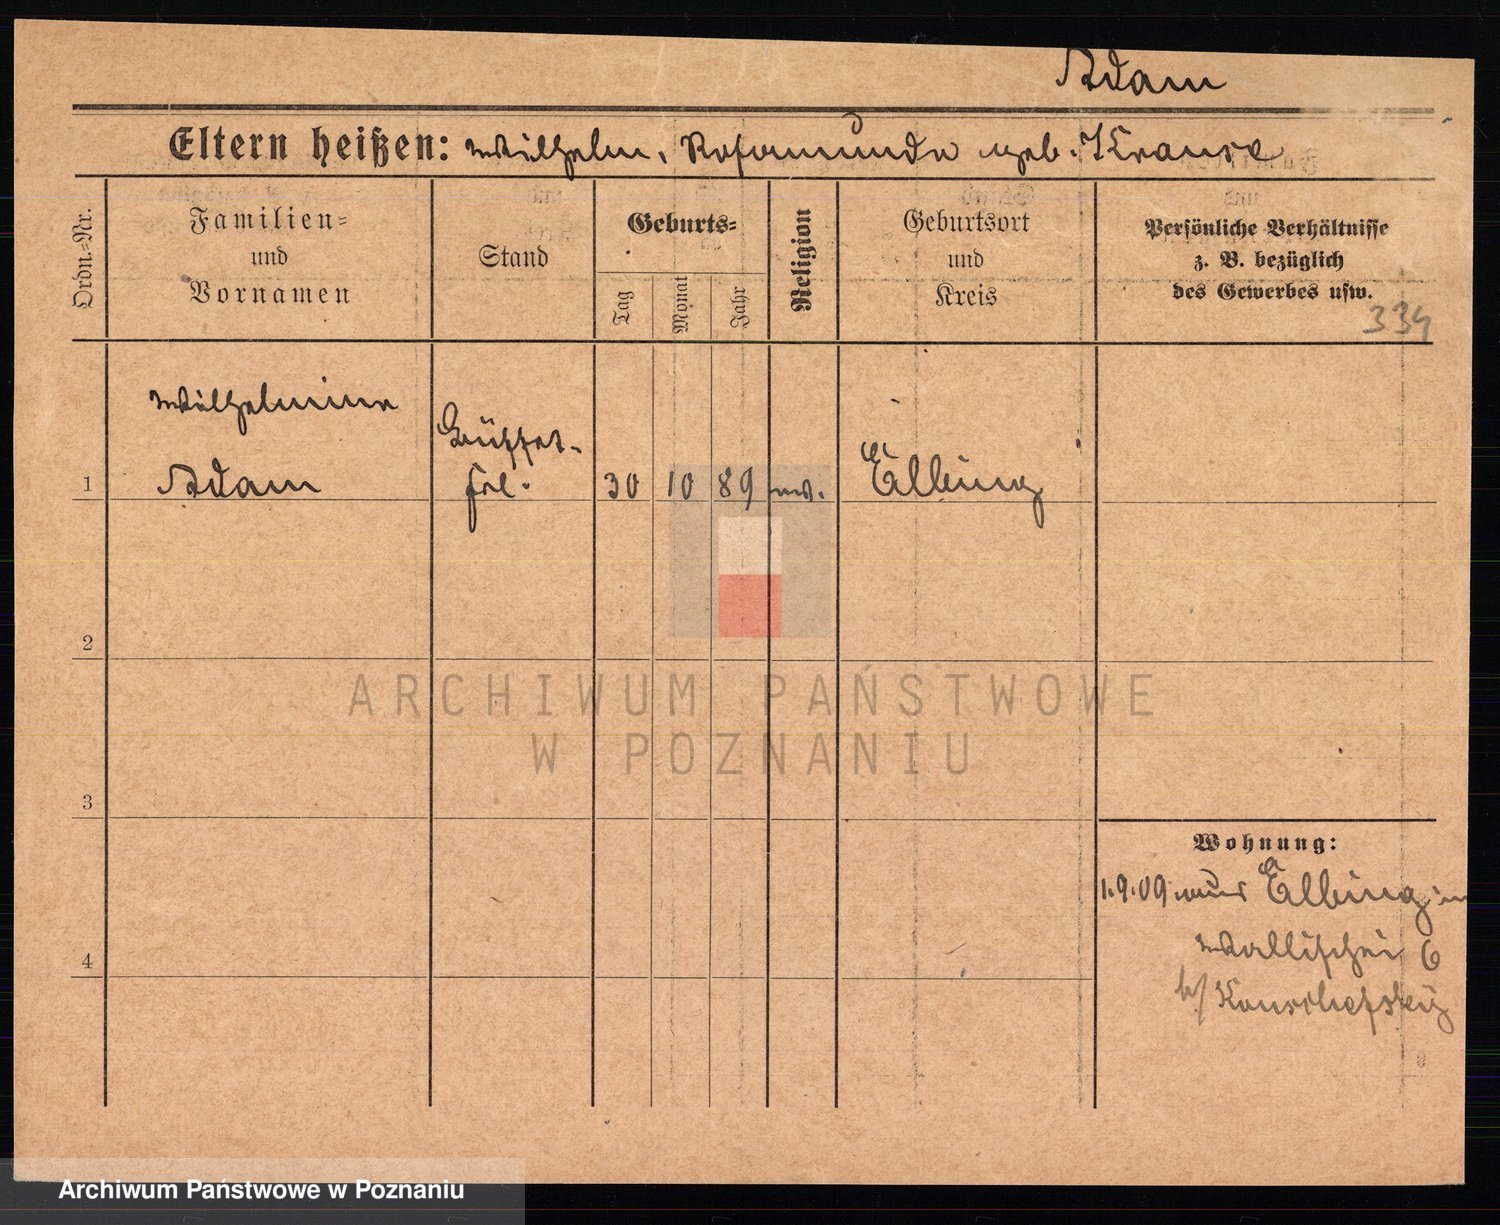 Adam
Eltern heißen: Wilhelm, Rosamunde geb. Krause
Ordn.-Nr.
Familien-
und
Vornamen
Stand
Geburts-
Tag
Monat
Jahr
Religion
Geburtsort
und
Kreis
Persönliche Verhältnisse
z. B. bezüglich
des Gewerbes usw.
334
Wilhelmine
Büffet-
1 Adam frl. 30 10 89 ev. Elbing
2
3
4
Wohnung:
1.9.09 aus Elbing in
Wallischei 6
b/
ARCHIWUM PAŃSTWOWE
W POZNANIU
Archiwum Państwowe w Poznaniu